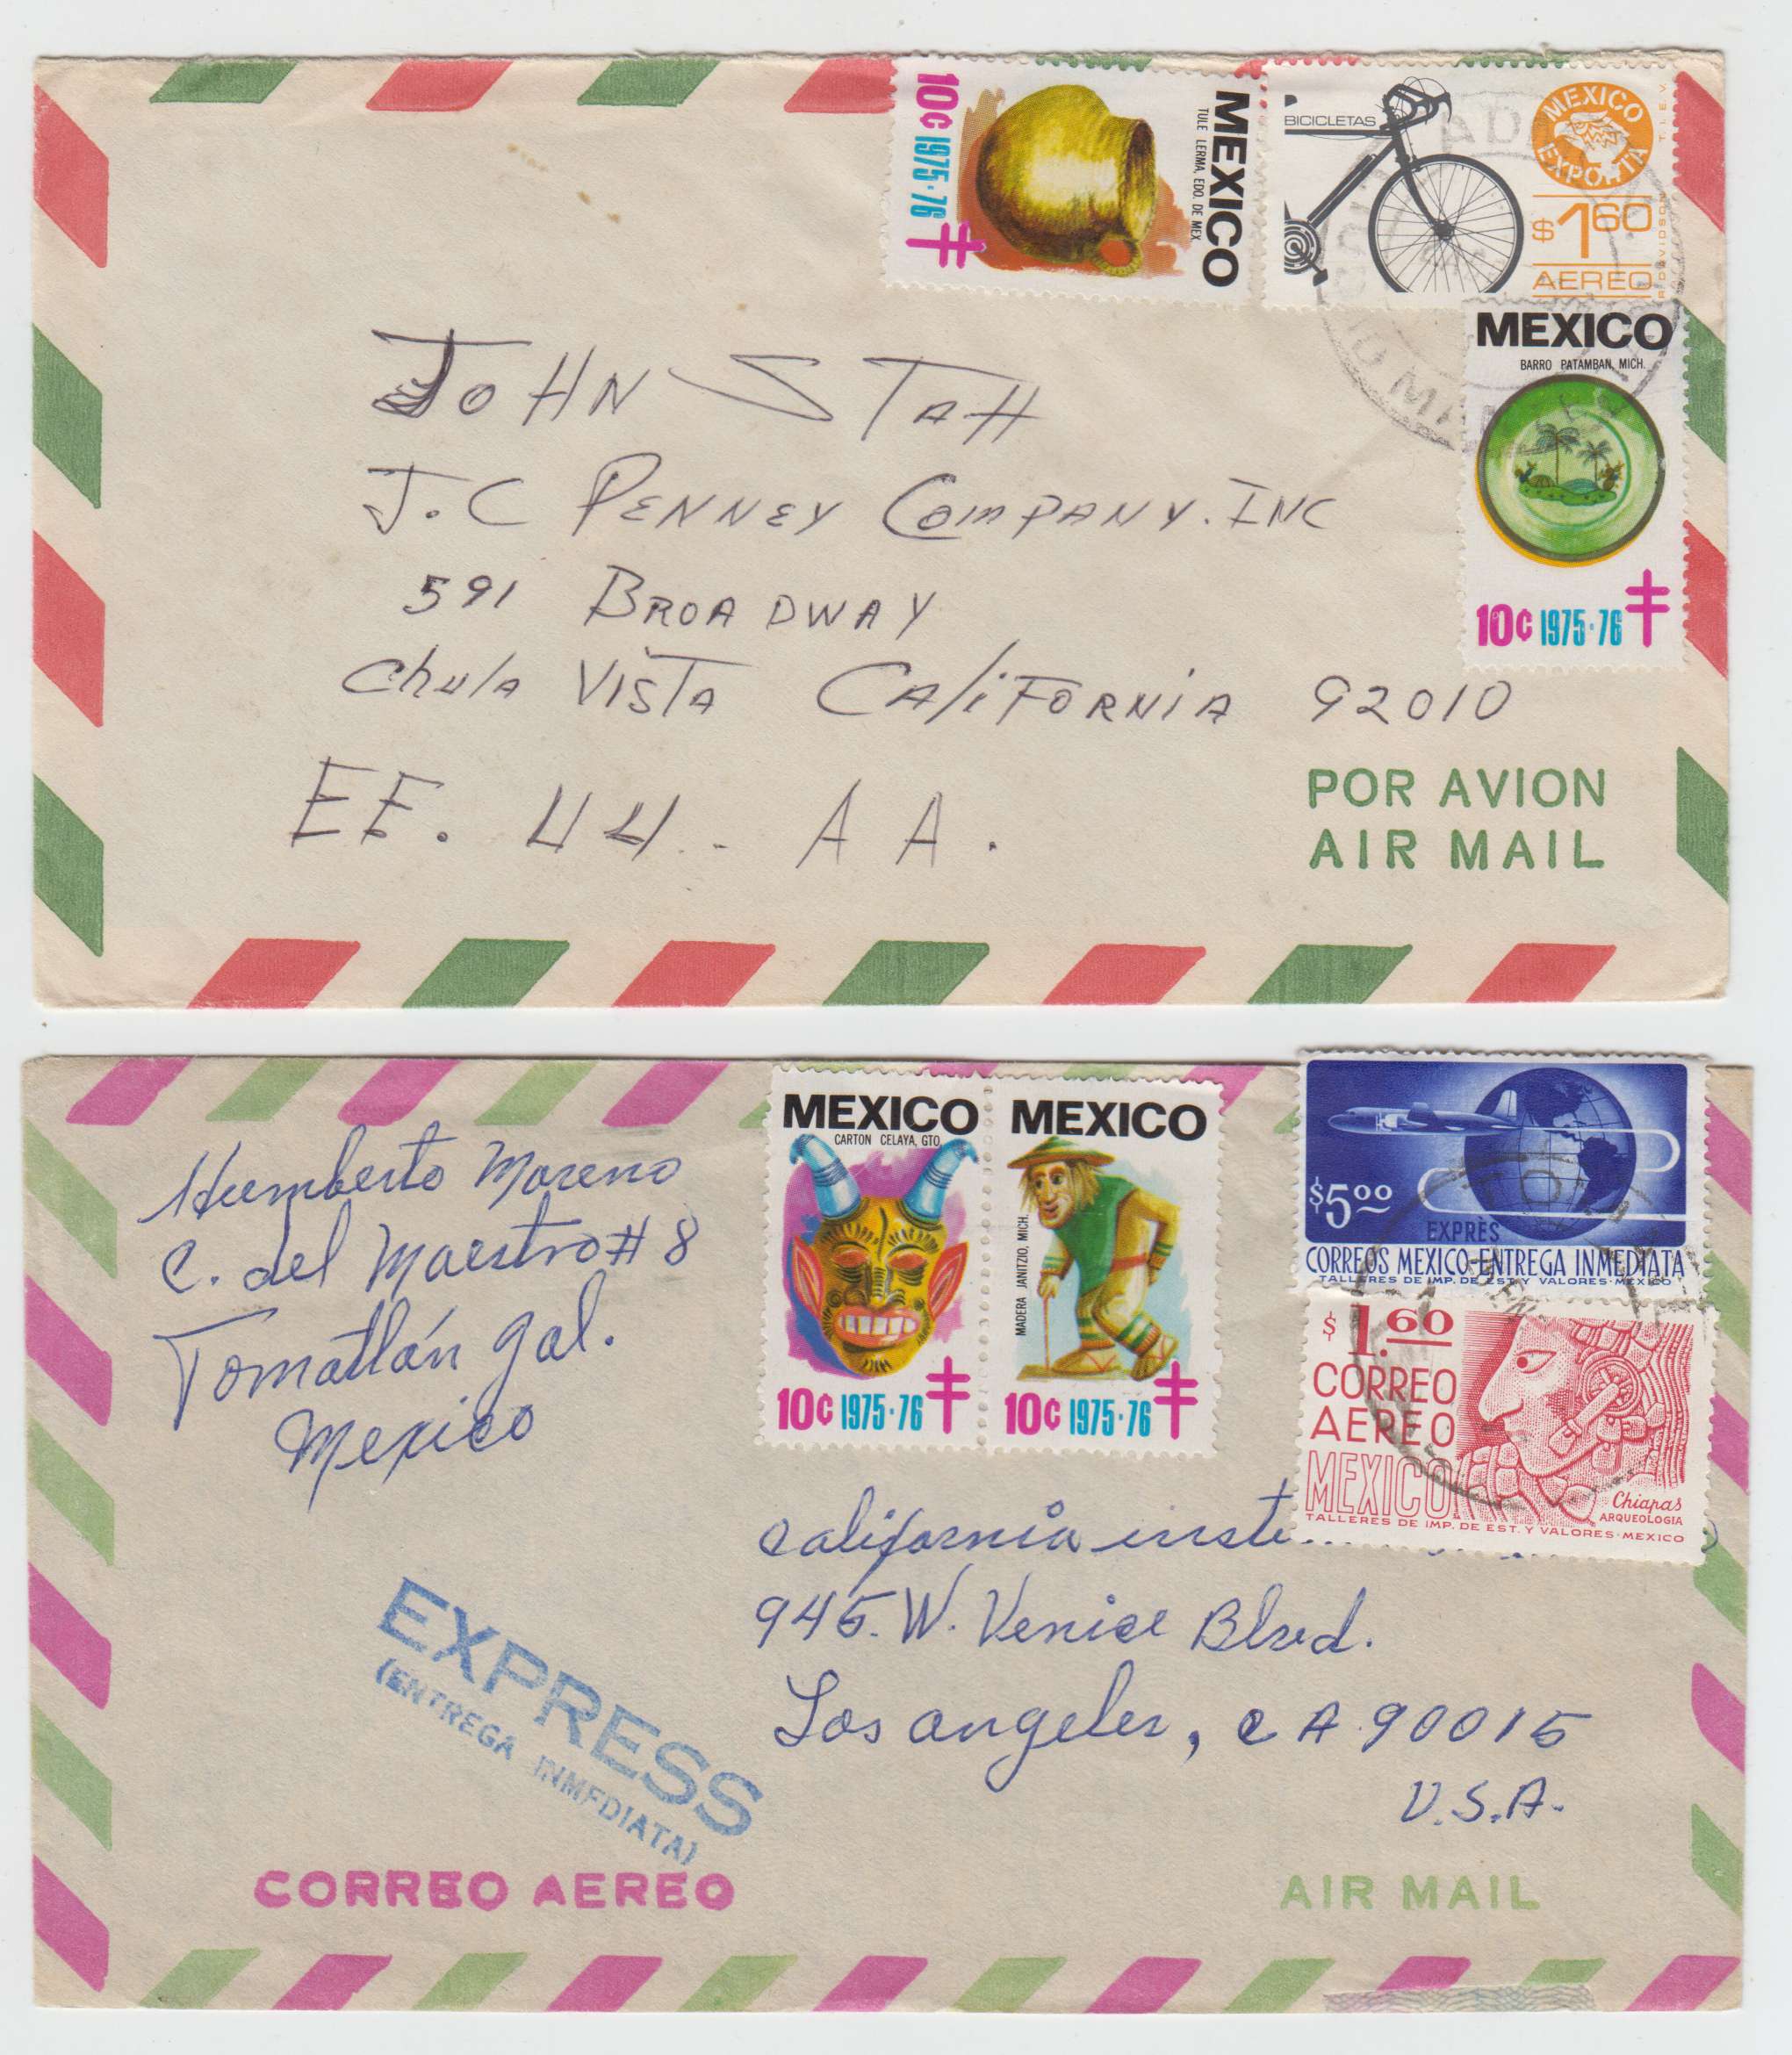 10¢ 1975·76
MEXICO
TULE LERMA, EDO. DE MEX
BICICLETAS
MEXICO
EXPORTA
$1.60
AEREO
T.I.E.V.
R. DAVIDSON
MEXICO
BARRO PATAMBAN, MICH.
10¢ 1975·76
JOHN STAH
J.C PENNEY COMPANY. INC
591 BROADWAY
Chula VISTA CAliFORNiA 92010
EE. UU.. A A.
POR AVION
AIR MAIL
Humberto Moreno
C. del Maestro # 8
Tomatlán Jal.
Mexico
MEXICO
CARTON CELAYA, GTO.
10¢ 1975·76
MEXICO
MADERA JANITZIO, MICH.
10¢ 1975·76
$5.00
EXPRES
CORREOS MEXICO-ENTREGA INMEDIATA
TALLERES DE IMP. DE EST. Y VALORES-MEXICO
$1.60
CORREO
AEREO
MEXICO
Chiapas
ARQUEOLOGIA
TALLERES DE IMP. DE EST. Y VALORES-MEXICO
California
945. W. Venice Blvd.
Los angeles, CA 90015
U.S.A.
EXPRESS
(ENTREGA INMEDIATA)
CORREO AEREO
AIR MAIL